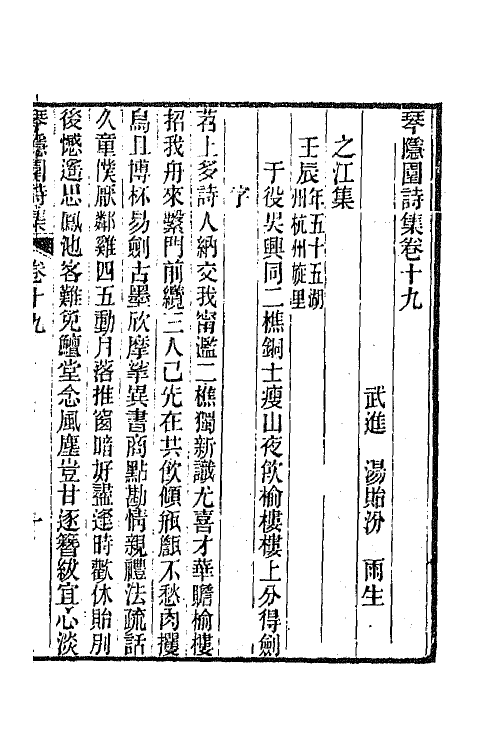 琴隱園詩集卷十九
武進　湯貽汾　雨生
之江集
壬辰年五十五湖州杭州旋里
于役吳興同二樵銅士瘦山夜飲榆樓樓上分得劍
字
苕上多詩人納交我甯濫二樵獨新識尤喜才華贍榆樓
招我舟來繫門前纜三人已先在共飲傾瓶甒不愁肉攫
烏且博杯易劍古墨欣摩挲異書商點勘情親禮法疏話
久童僕厭鄰雞四五動月落推窗暗好盡逢時歡休貽別
後憾遙思鳳池客難免鱣堂念風塵豈甘逐簪紱宜心淡
琴隱園詩集　卷十九　一